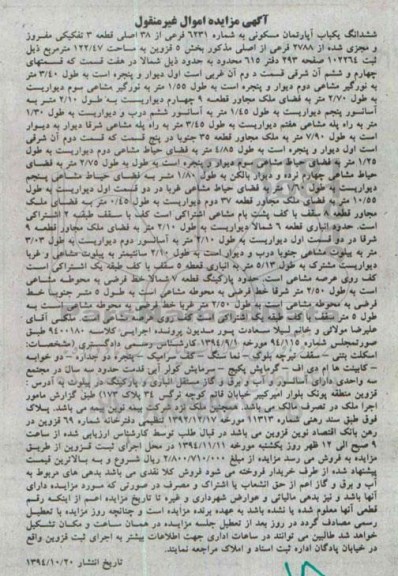 آگهی مزایده اموال غیرمنقول
ششدانگ یکباب آپارتمان مسکونی به شماره ۶۲۳۱ فرعی از ۳۸ اصلی قطعه ۳ تفکیکی مفروز
و مجزی شده از ۲۷۸۸ فرعی از اصلی مذکور بخش ۵ قزوین به مساحت ۱۲۲/۴۷ مترمربع ذیل
ثبت ۱۰۲۲۶۴ صفحه ۲۹۳ دفتر ۶۱۵ محدود به حدود ذیل شمالا در هفت قسمت که قسمتهای
چهارم و ششم آن شرقی قسمت دوم آن غربی است اول دیوار و پنجره است به طول ۳/۴۰ متر
به نورگیر مشاعی دوم دیوار و پنجره است به طول ۱/۵۵ متر به نورگیر مشاعی سوم دیواریست
به طول ۲/۷۰ متر به فضای ملک مجاور قطعه ۹ چهارم دیواریست به طول ۲/۱۰ متر به
آسانور پنجم دیواریست به طول ۱/۴۵ متر به آسانور ششم درب و دیواریست به طول ۱/۳۰
متر به راه پله مشاعی هفتم دیواریست به طول ۳/۴۵ متر به راه پله مشاعی شرقا دیوار به دیوار
است به طول ۷/۹۰ متر به ملک مجاور قطعه ۳۵ جنوبا در پنج قسمت که قسمت دوم آن شرقی
است اول دیوار و پنجره است به طول ۴/۸۵ متر به فضای حیاط مشاعی دوم دیواریست به طول
۱/۲۵ متر به فضای حیاط مشاعی سوم دیوار و پنجره است به طول به طول ۲/۷۵ متر به فضای
حیاط مشاعی چهارم نرده و دیوار بالکن به طول ۱/۸۰ متر به فضای حیاط مشاعی پنجم
دیواریست به طول متر به فضای حیاط مشاعی غربا در دو قسمت اول دیواریست به طول
۱۰/۵۵ متر به فضای ملک مجاور قطعه ۳۷ دوم دیواریست به طول ۰/۴۵ متر به فضای ملک
مجاور قطعه سقف با کف پشت بام مشاعی اشتراکی است کف با سقف طبقه ۲ اشتراکی
است. حدود انباری قطعه ۶ شمالا دیواریست به طول ۲/۱۰ متر به فضای ملک مجاور قطعه ۹
شرقا در دو قسمت اول دیواریست به طول ۲/۱۰ متر به آسانور دوم دیواریست به طول ۳/۰۳
متر به پیلوت مشاعی جنوبا درب و دیوار است به طول ۲/۱۰ سانتیمتر به پیلوت مشاعی و غربا
دیواریست مشترک به طول ۵/۱۳ متر به انباری قطعه ۵ سقف با کف طبقه یک اشتراکی است
کف روی عرصه مشاعی است. حدود پارکینگ قطعه شمالا خط فرضی به محوطه مشاعی
است به طول ۲/۵۰ متر شرقا خط فرضی به محوطه مشاعی است به طول ۵ متر جنوبا خط
فرضی به محوطه مشاعی است به طول ۲/۵۰ متر غربا خط فرضی به محوطه مشاعی است به
طول ۵ متر سقف با کف طبقه یک اشتراکی است کف روی عرصه مشاعی است ملکی آقای
علیرضا مولائی و خانم لیلا سعادت پور مدیون پرونده اجرایی کلاسه ۹۴۰۰۱۸۰ طبق
صورتمجلس شماره ۹۴/۱۱۵ مورخه ۱۳۹۴/۹/۱ کارشناس رسمی دادگستری (مشخصات:
اسکلت بتنی - سقف تیرچه بلوک - نما سنگ - کف سرامیک - پنجره دو جداره - دو خوابه
- کابینت ها ام دی اف - گرمایش پکیج - سرمایش کولر آبی قدمت حدود سه سال در مجتمع
سه واحدی دارای آسانسور و آب و برق و گاز مستقل انباری و پارکینگ در پیلوت به آدرس :
قزوین منطقه پونک بلوار امیرکبیر خیابان قائم کوچه نرگس ۳۴ پلاک ۱۷۳) طبق گزارش مامور
اجرا ملک در تصرف مالک می باشد همچنین ملک نزد شرکت بیمه نوین بیمه می باشد. پلاک
فوق طبق سند رهنی شماره ۱۱۳۱۳ مورخه ۱۳۹۲/۱۲/۱۷ تنظیمی دفترخانه شماره ۶۹ قزوین در
رهن بانک اقتصاد نوین قزوین می باشد در قبال طلب توسط کارشناس ارزیابی شده از ساعت
۹ صبح الی ۱۲ ظهر روز یکشنبه مورخه ۱۳۹۴/۱۱/۱۱ در محل اجرای ثبت قزوین از طریق
مزایده به فروش می رسد مزایده از مبلغ ۲/۸۰۰/۷۱۰/۰۰۰ ریال شروع و به بالاترین قیمت
پیشنهاد شده از طرف خریدار فروخته می شود فروش کلا نقدی می باشد بدهی های مربوط به
آب و برق و گاز اعم از حق انشعاب یا اشتراک و مصرف در صورتی که مورد مزایده دارای
آنها باشد و نیز بدهی مالیاتی و عوارض شهرداری و غیره تا تاریخ مزایده اعم از اینکه رقم
قطعی آنها معلوم شده یا نشده باشد به عهده برنده مزایده است و چنانچه روز مزایده با تعطیل
رسمی مصادف گردد در روز بعد از تعطیل جلسه مزایده در همان ساعت و مکان تشکیل
خواهد شد طالبین می توانند در ساعات اداری جهت اطلاعات بیشتر به اجرای ثبت قزوین واقع
در خیابان پادگان اداره ثبت اسناد و املاک مراجعه نمایند.
تاریخ انتشار ۱۳۹۴/۱۰/۲۰